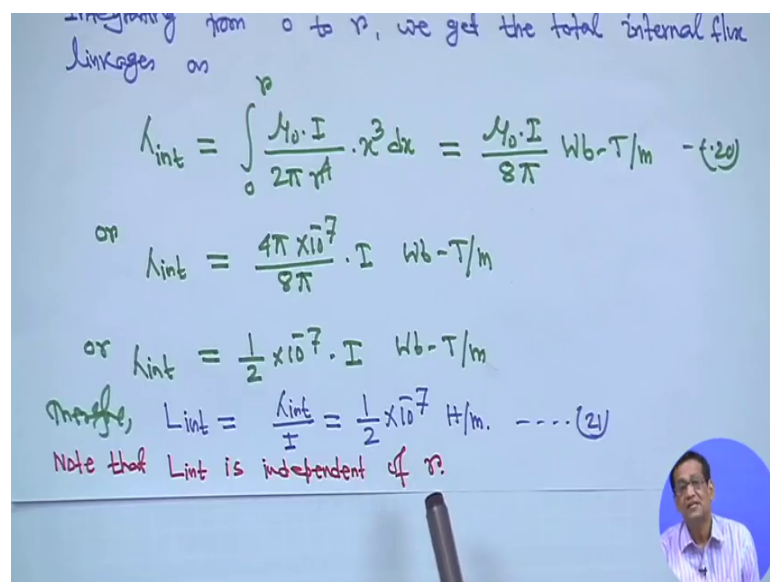 Integrating from 0 to r, we get the total internal flux
linkages as
λint = ∫₀ʳ μ₀·I / 2πr⁴ · x³dx = μ₀·I / 8π Wb-T/m -(20)
or λint = 4π×10⁻⁷ / 8π · I Wb-T/m
or λint = 1/2 ×10⁻⁷·I Wb-T/m
Therefore, Lint = λint / I = 1/2 ×10⁻⁷ H/m. ----(21)
Note that Lint is independent of r.